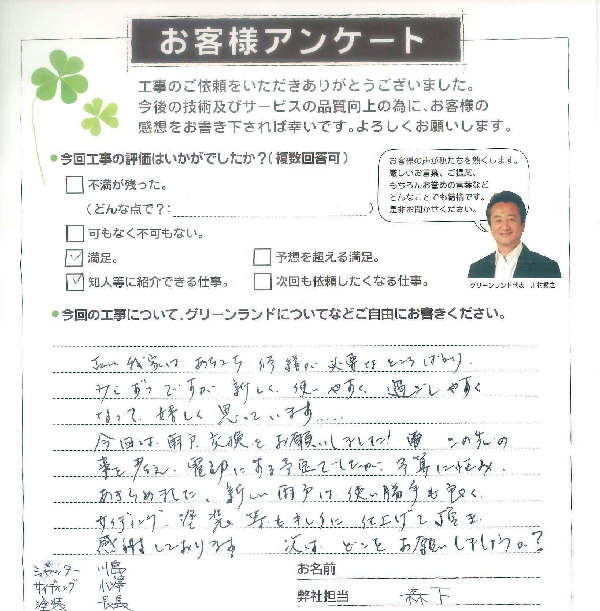 お客様アンケート
工事のご依頼をいただきありがとうございました。
今後の技術及びサービスの品質向上の為に、お客様の
感想をお書き下されば幸いです。よろしくお願いします。
●今回工事の評価はいかがでしたか?(複数回答可)
お客様の声が私たちを熱くします。
厳しいお言葉、ご提案、
もちろんお誉めの言葉など
どんなことでも結構です。
是非お聞かせください。
不満が残った。
(どんな点で?: )
可もなく不可もない。
満足。
予想を超える満足。
知人等に紹介できる仕事。
次回も依頼したくなる仕事。
グリーンランド代表
●今回の工事について、グリーンランドについてなどご自由にお書きください。
我家は あちこち 修繕が 必要なところばかり
少しずつですが 新しく、使いやすく、過ごしやすく
なって、嬉しく思っています.....
今回は 雨戸交換をお願いしました! この先の
事を考え、電動にする予定でしたが、予算に悩み、
あきらめました。新しい雨戸は使い勝手も良く、
サイディング、塗装等もキレイに仕上げて頂き
感謝しております 次は どこを お願いしましょうか?
シャッター 川島
サイディング 小澤
塗装 長島
お名前
弊社担当 森下